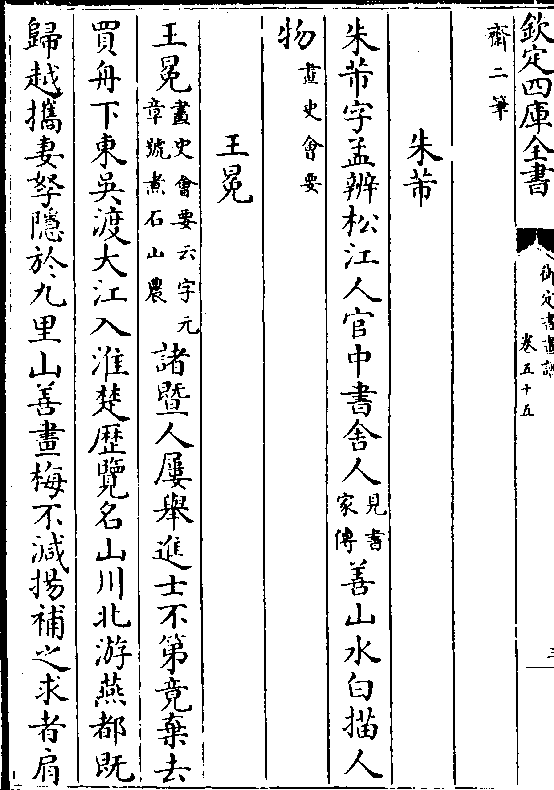 欽定四庫全書
御定書畫譜
卷五十五
三
齋二筆
朱芾
朱芾字孟辨松江人官中書舍人見書家傳善山水白描人
物畫史會要
王冕
王冕畫史會要云字元章號煮石山農諸暨人屢舉進士不第竟棄去
買舟下東吳渡大江入淮楚歷覽名山川北游燕都既
歸越攜妻孥隱於九里山善畫梅不減揚補之求者肩